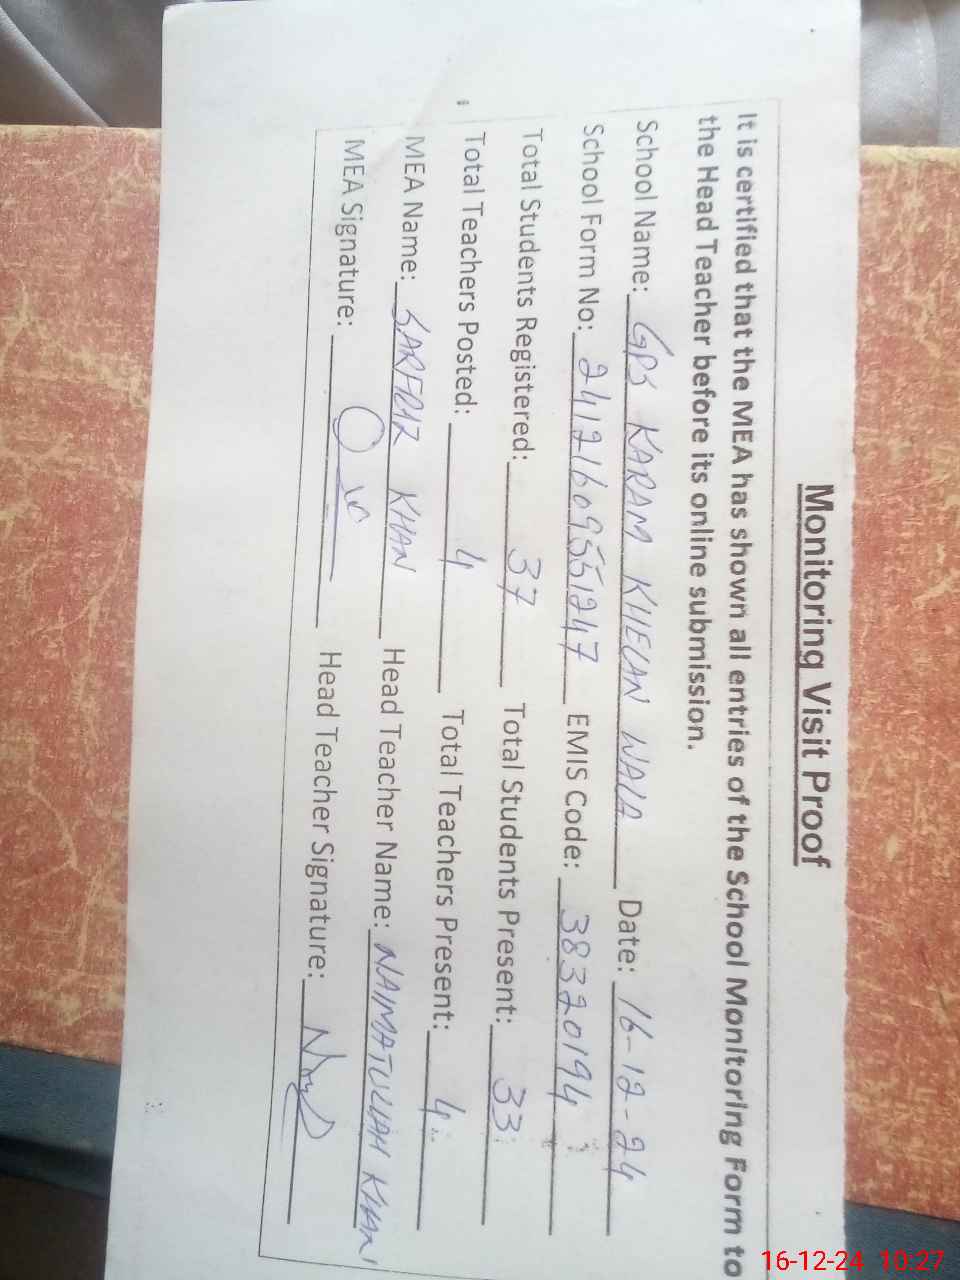 Monitoring Visit Proof
It is certified that the MEA has shown all entries of the School Monitoring Form to
the Head Teacher before its online submission.
School Name: GPS KARAM KHELAN WALA Date: 16-12-24
School Form No: 241216095551247 EMIS Code: 38320194
Total Students Registered: 37 Total Students Present: 33
Total Teachers Posted: 4 Total Teachers Present: 4
MEA Name: SARFRAZ KHAN Head Teacher Name: NAIMATULLAH KHAN
MEA Signature: Head Teacher Signature:
16-12-24 10:27